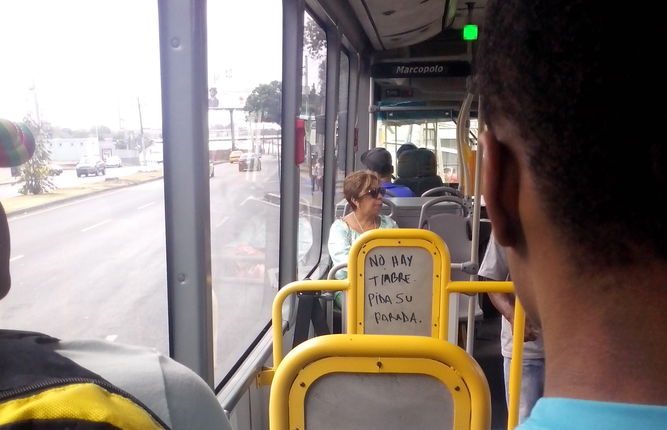 Marcopolo
NO HAY
TIMBRE.
PIDA SU
PARADA.